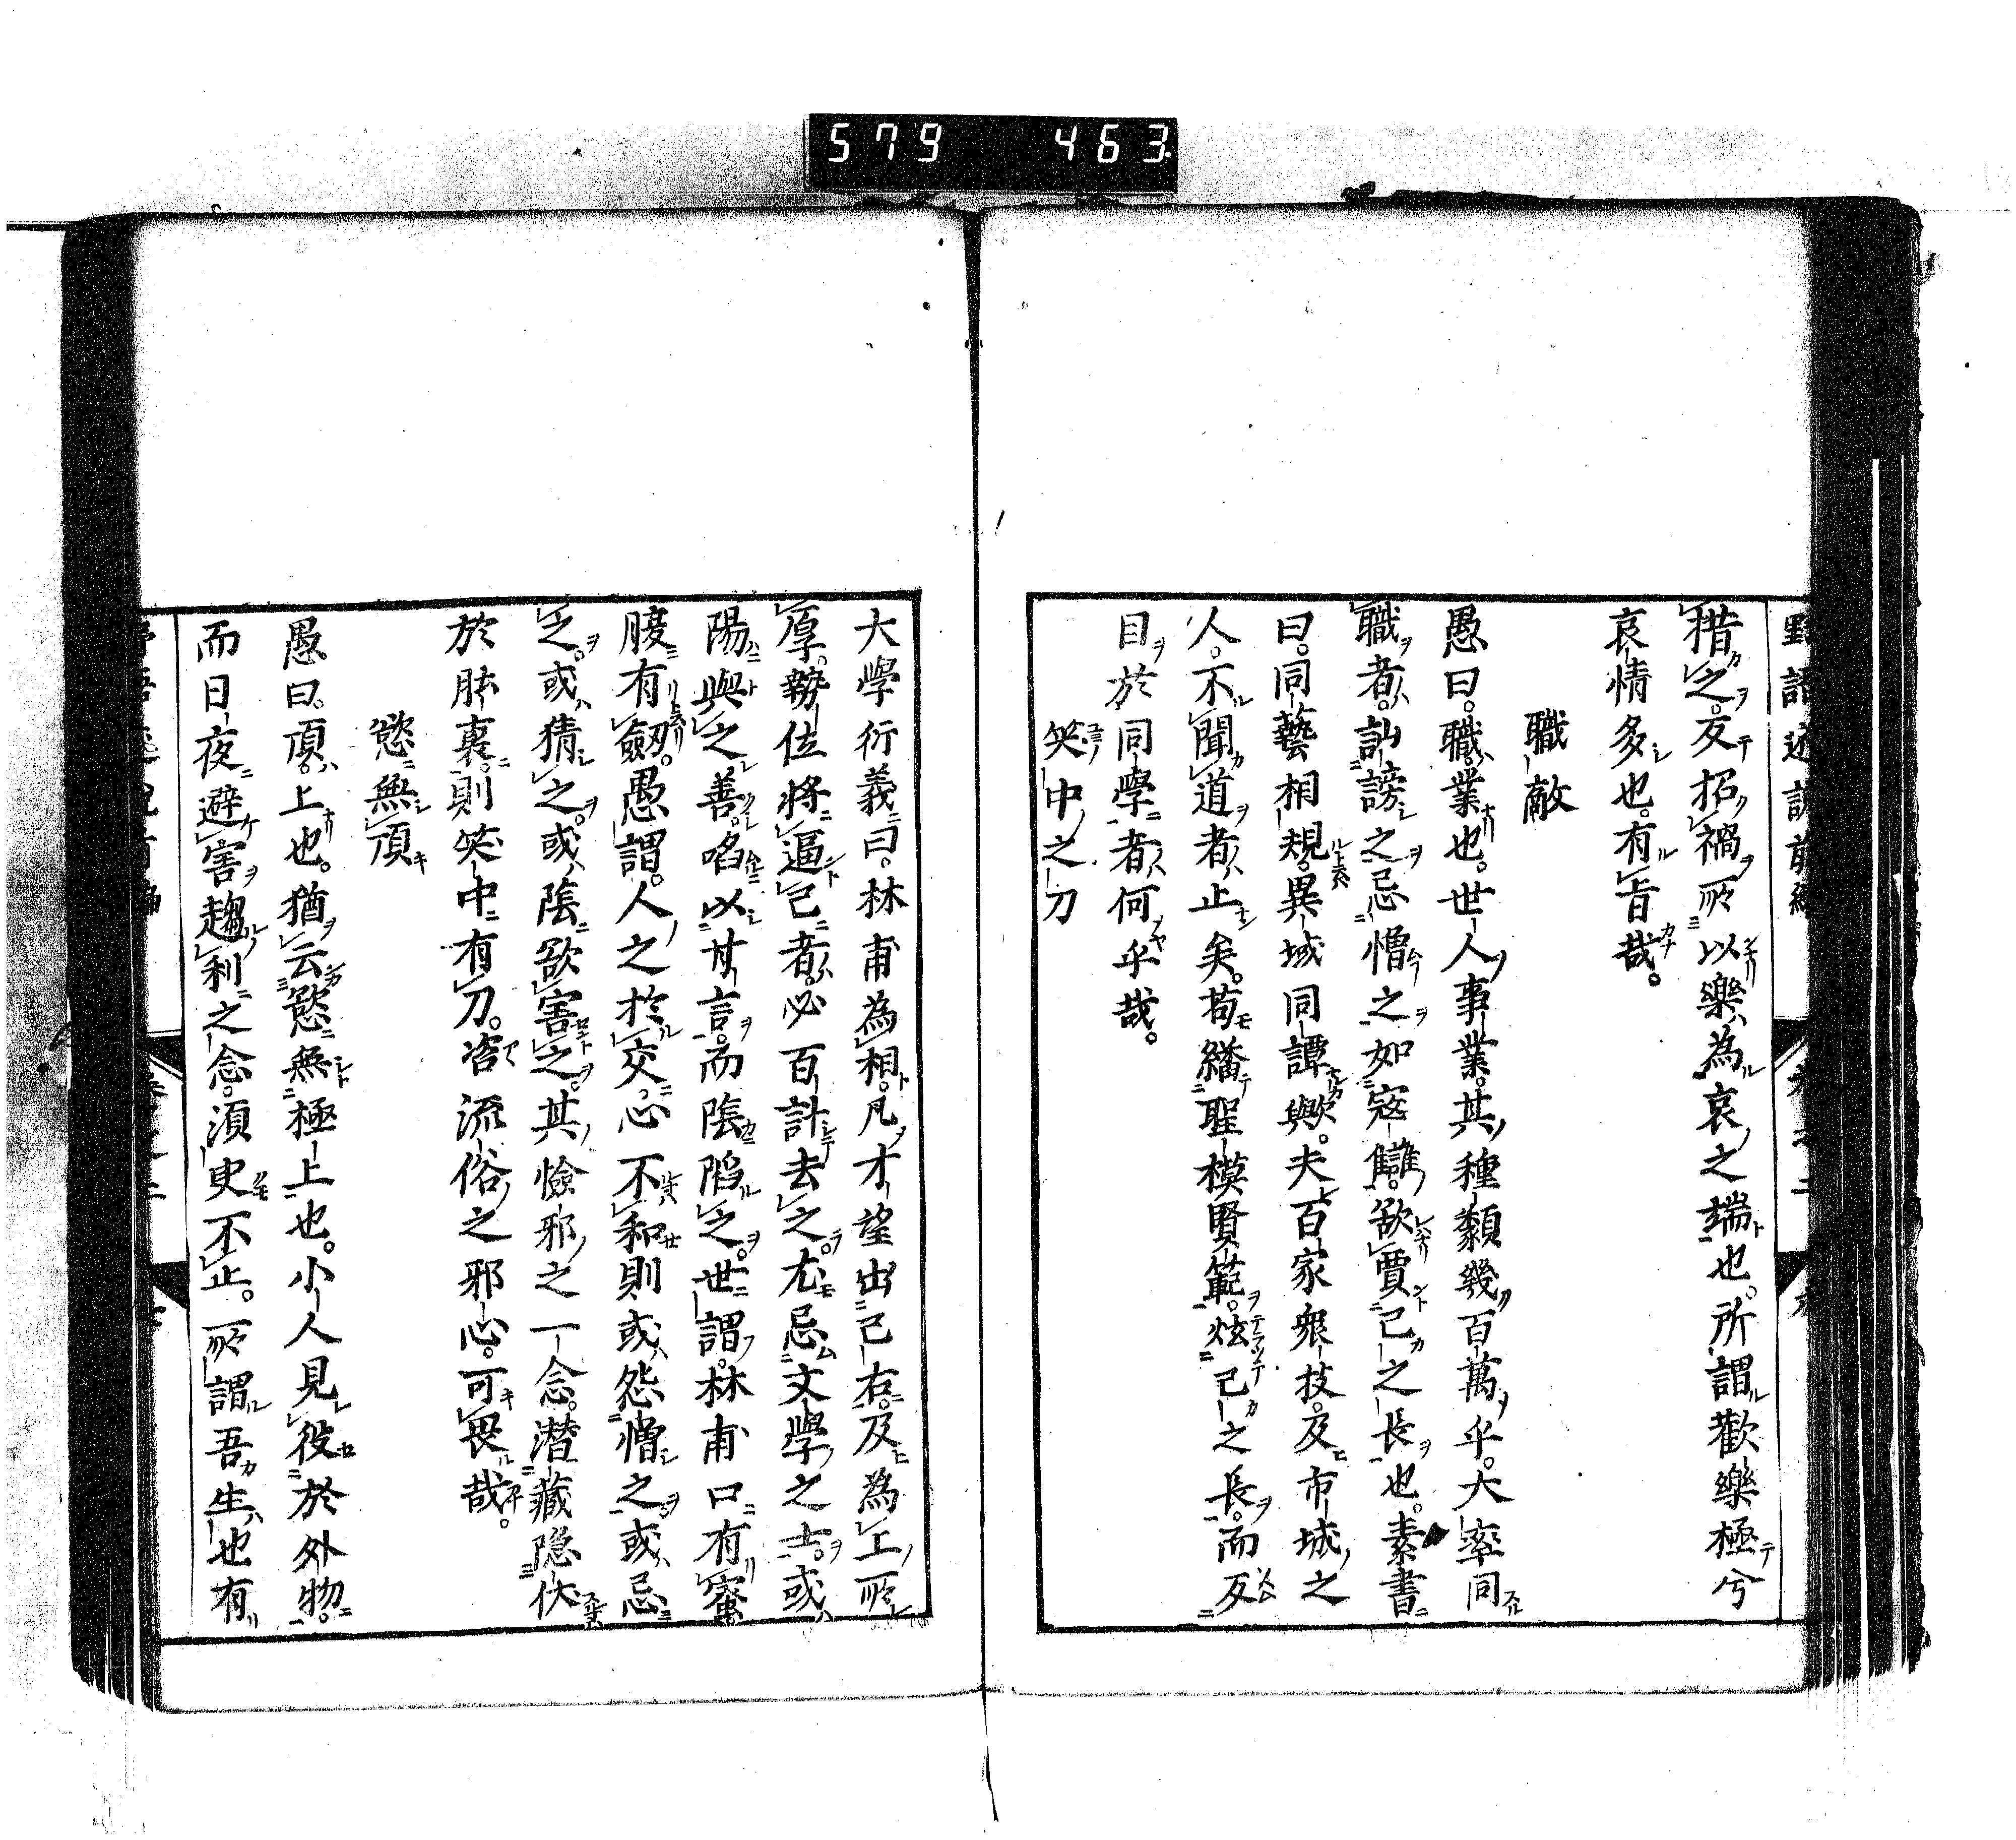 579 463
措之。反招禍。所以樂為哀之端也。所謂歡樂極兮
哀情多也。有旨哉。
職敵
愚曰。職業也。世人事業。其種類幾百萬乎。大率同
職者。訕謗之忌憎之如寇讎。欲賈己之長也。素書
曰。同藝相規。異城同譚歟。夫百家衆技。及市城之
人。不聞道者止矣。苟繙聖模賢範。炫己之長。而反
目於同學者何乎哉。
笑中之刀
大學衍義曰。林甫為相。凡才望出己右。及為上所
厚。勢位将逼己者。必百計去之。尤忌文學之士。或
陽與之善。啗以甘言。而陰陷之。世謂。林甫口有蜜。
腹有劔。愚謂。人之於交。心不和則或怨憎之。或忌
之。或猜之。或陰欲害之。其憸邪之一念。潜藏隠伏
於肺裏。則笑中有刀。咨流俗之邪心。可畏哉。
慾無頂
愚曰。頂。上也。猶云慾無極上也。小人見役於外物。
而日夜避害趨利之念。須臾不止。所謂吾生也有